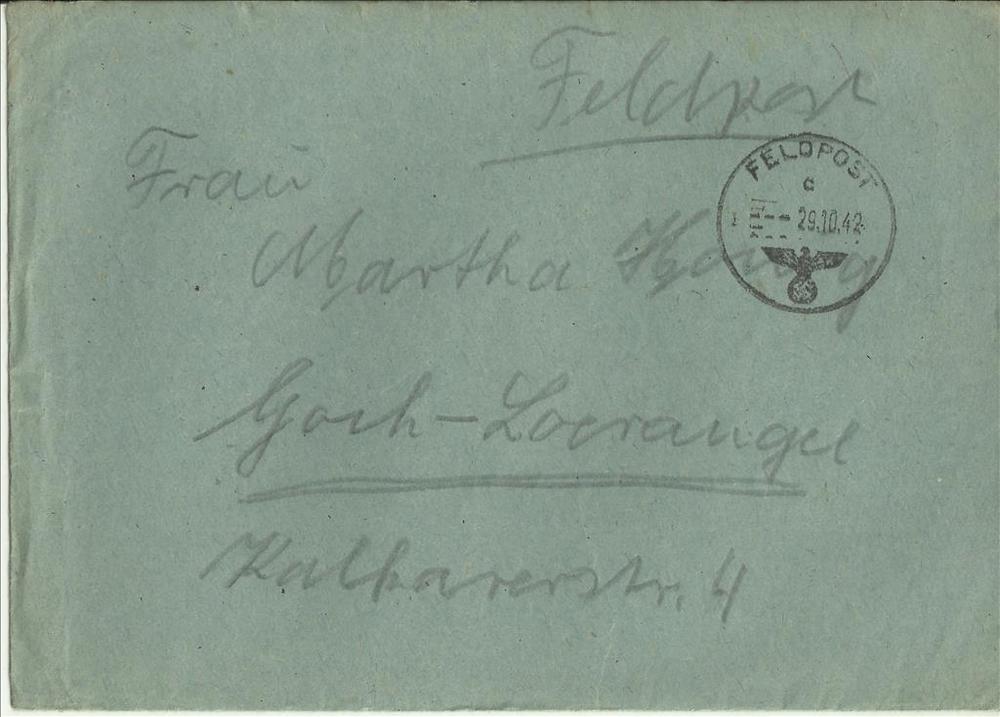 Feldpost
FELDPOST
c
29.10.42
Frau
Martha
Goch-Loerangel
str. 4